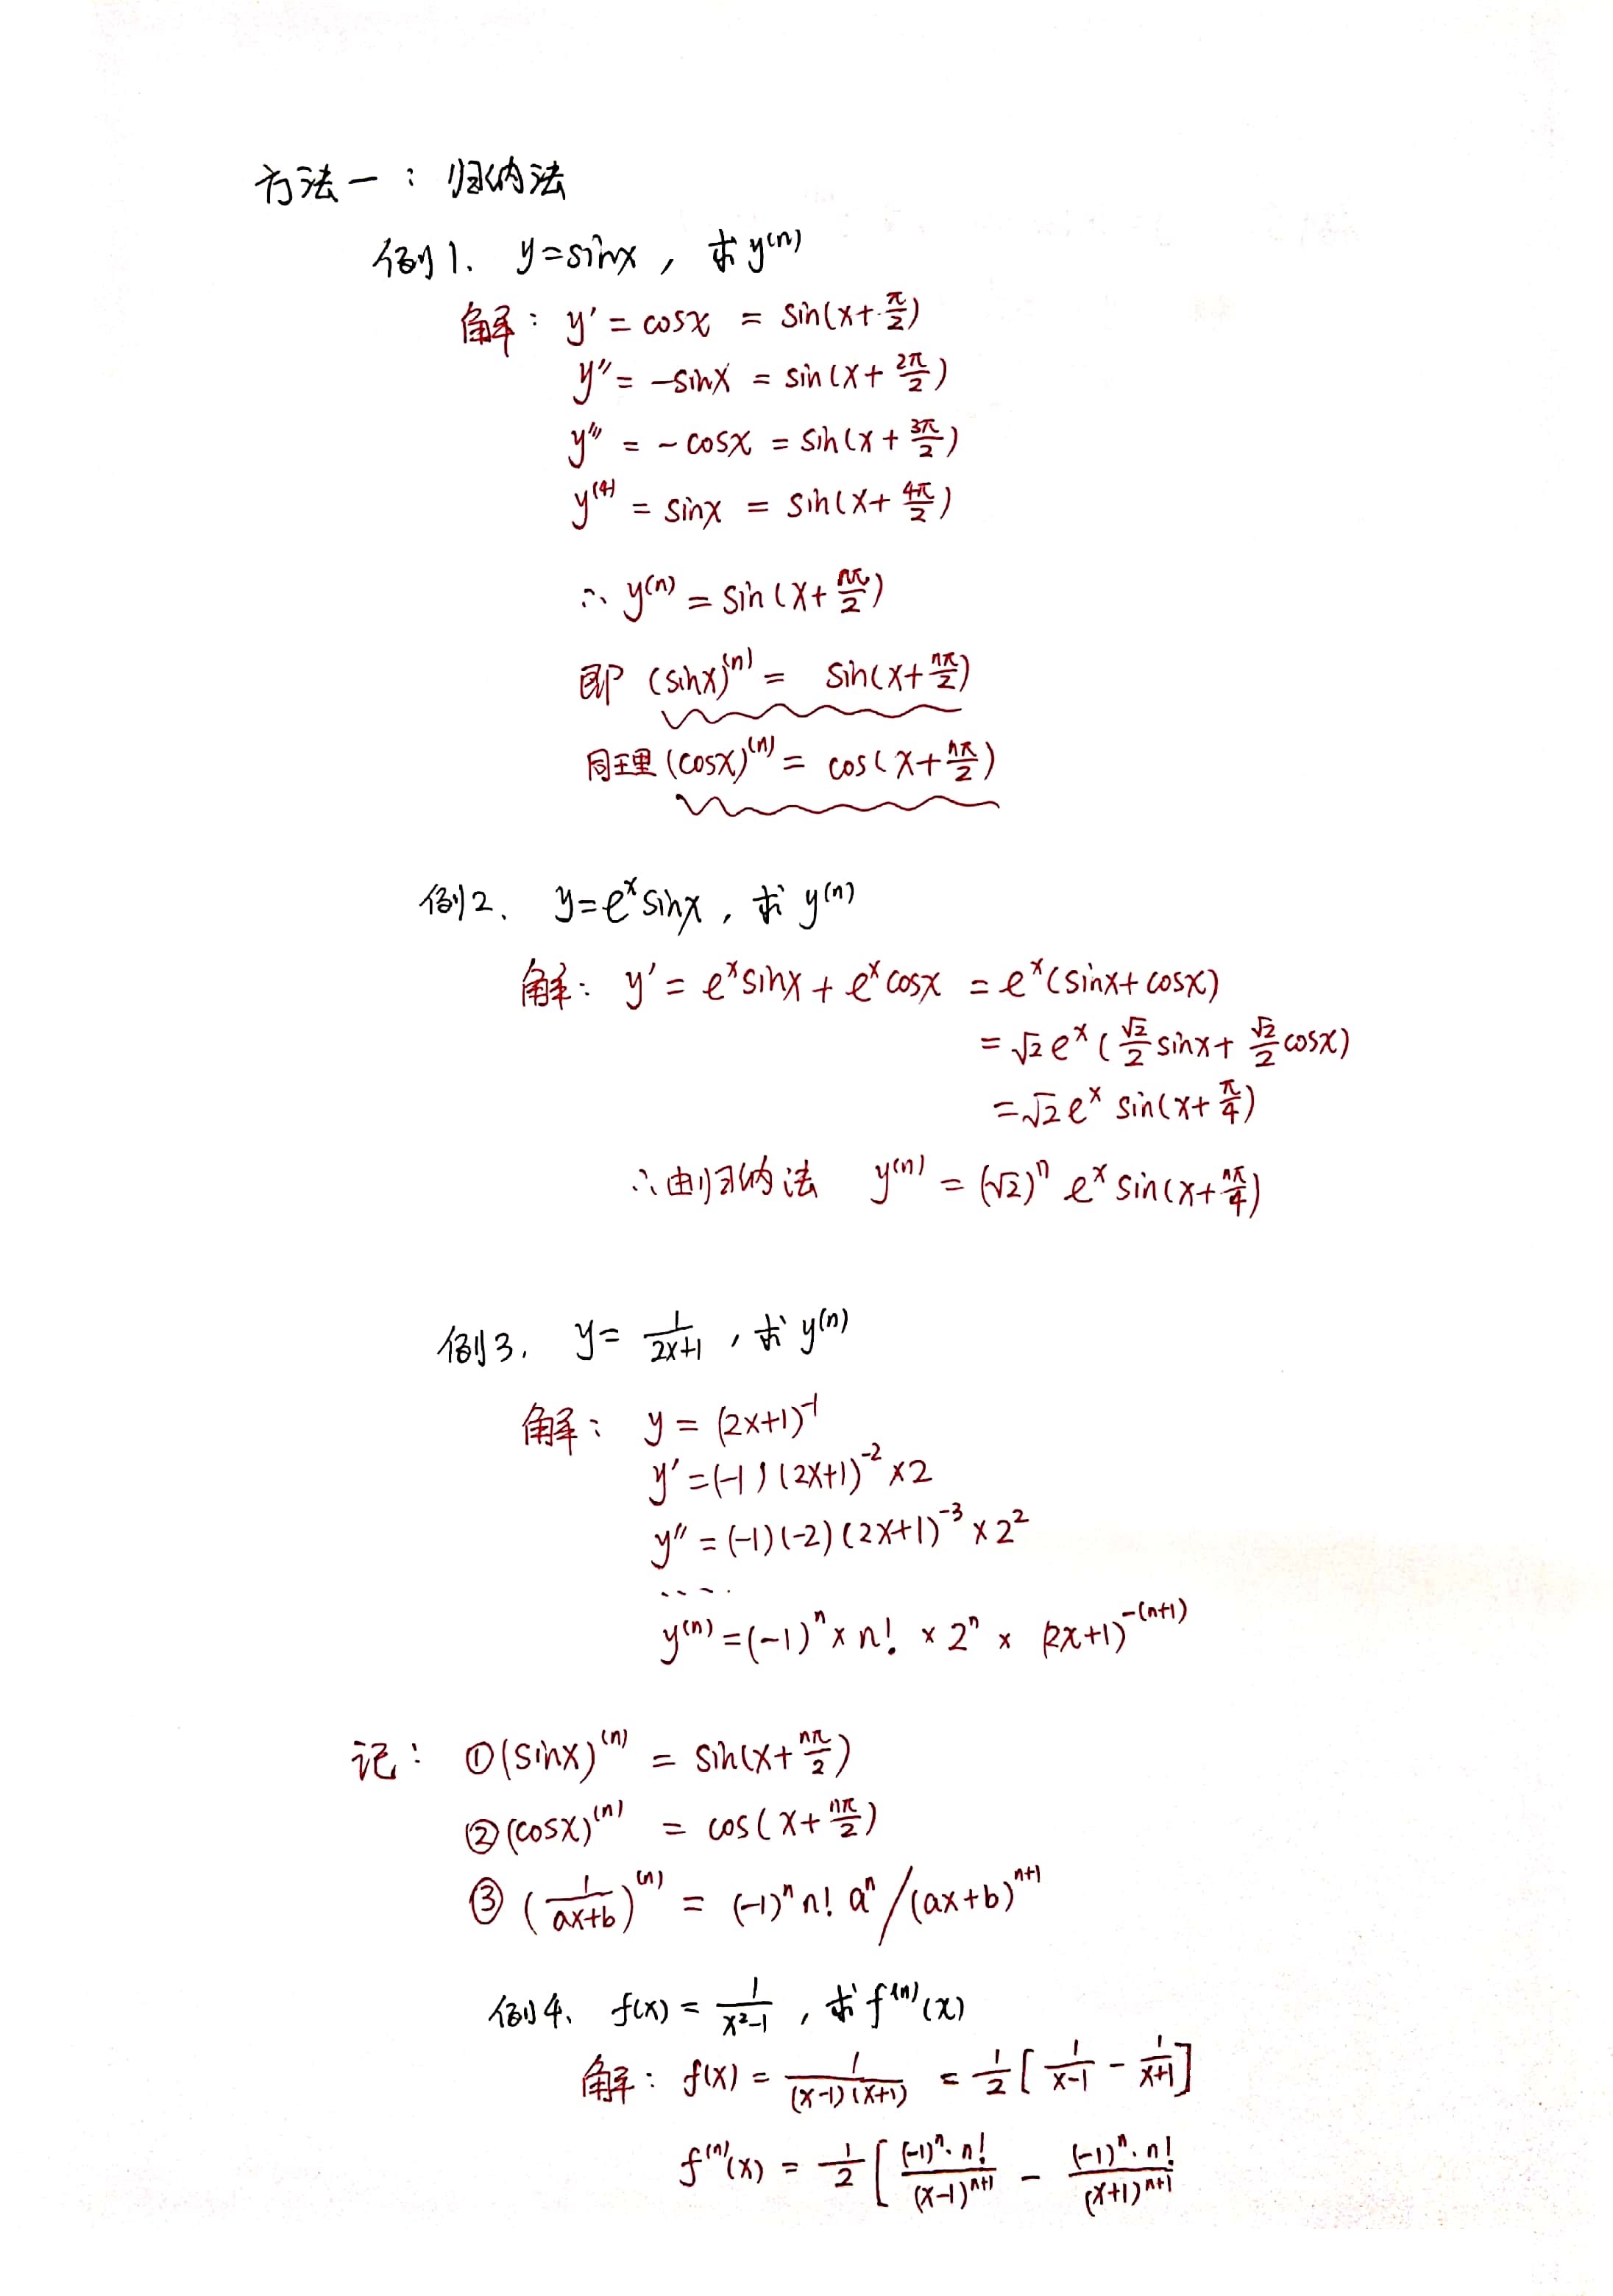 方法一：归纳法
例1. y=sinx，求y⁽ⁿ⁾
解：y′ = cosx = sin(x+π/2)
y″ = -sinx = sin(x+2π/2)
y‴ = -cosx = sin(x+3π/2)
y⁽⁴⁾ = sinx = sin(x+4π/2)
∴ y⁽ⁿ⁾ = sin(x+nπ/2)
即 (sinx)⁽ⁿ⁾ = sin(x+nπ/2)
同理 (cosx)⁽ⁿ⁾ = cos(x+nπ/2)
例2、 y=eˣsinx，求 y⁽ⁿ⁾
解：y′ = eˣsinx + eˣcosx = eˣ(sinx+cosx)
= √2 eˣ(√2/2 sinx + √2/2 cosx)
= √2 eˣ sin(x+π/4)
∴由归纳法 y⁽ⁿ⁾ = (√2)ⁿ eˣ sin(x+nπ/4)
例3. y= 1/(2x+1)，求 y⁽ⁿ⁾
解：y = (2x+1)⁻¹
y′ = (-1)(2x+1)⁻²×2
y″ = (-1)(-2)(2x+1)⁻³×2²
....
y⁽ⁿ⁾ = (-1)ⁿ × n! × 2ⁿ × (2x+1)⁻⁽ⁿ⁺¹⁾
记：①(sinx)⁽ⁿ⁾ = sin(x+nπ/2)
②(cosx)⁽ⁿ⁾ = cos(x+nπ/2)
③(1/(ax+b))⁽ⁿ⁾ = (-1)ⁿ n! aⁿ/(ax+b)ⁿ⁺¹
例4、 f(x) = 1/(x²-1)，求f⁽ⁿ⁾(x)
解：f(x) = 1/((x-1)(x+1)) = 1/2[1/(x-1) - 1/(x+1)]
f⁽ⁿ⁾(x) = 1/2[(-1)ⁿ·n!/(x-1)ⁿ⁺¹ - (-1)ⁿ·n!/(x+1)ⁿ⁺¹